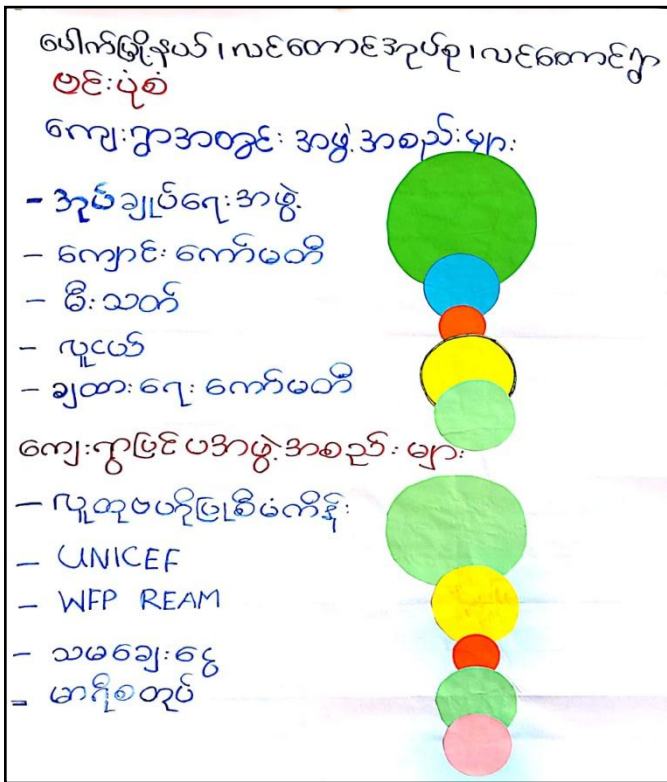 ပေါက်မြို့နယ်၊ လင်တောင်အုပ်စု၊ လင်တောင်ရွာ
ဗင်းပုံစံ
ကျေးရွာအတွင်း အဖွဲ့အစည်းများ
- အုပ်ချုပ်ရေးအဖွဲ့
- ကျောင်းကော်မတီ
- မီးသတ်
- လူငယ်
- ချထားရေးကော်မတီ
ကျေးရွာပြင်ပအဖွဲ့အစည်းများ
- လူထုဗဟိုပြုစီမံကိန်း
- UNICEF
- WFP REAM
- သမချေးငွေ
- မာရီစတုပ်